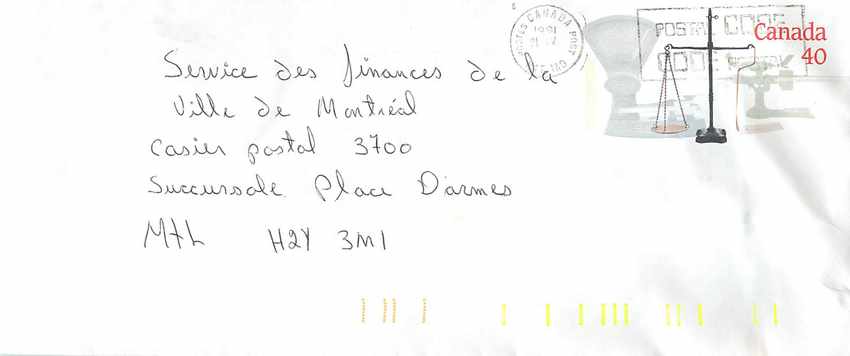 Service des finances de la
Ville de Montréal
Casier postal 3700
Succursale Place D'armes
Mtl H2Y 3M1
CANADA POST
1991
POSTAL CODE
CODE POSTAL
Canada
40